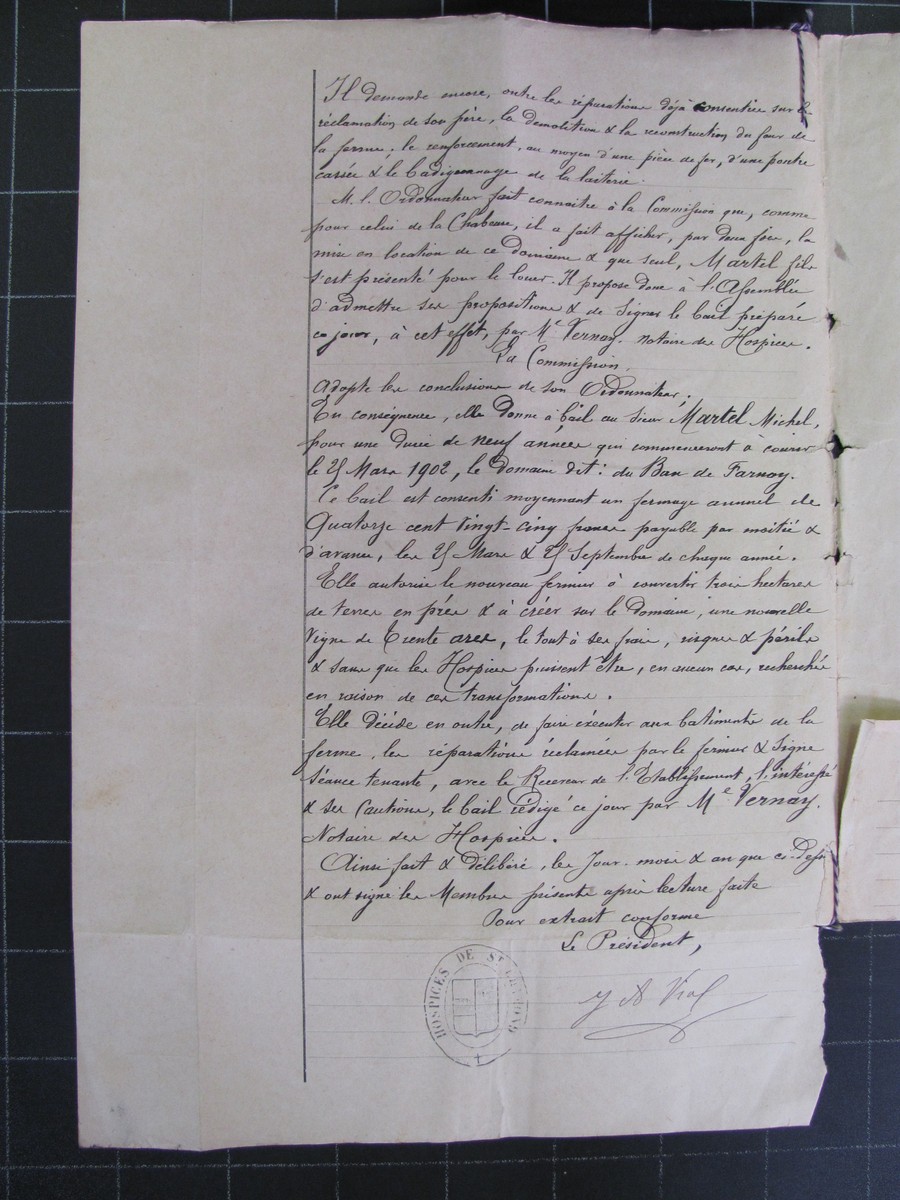 Il demande encore, outre les réparations déjà consenties sur la
réclamation de son père, la démolition & la reconstruction du four de
la ferme, le renforcement, au moyen d'une pièce de fer, d'une poutre
cassée & le badigeonnage de la laiterie.
M. l'Ordonnateur fait connaitre à la Commission que, comme
pour celui de la Chabeure, il a fait afficher, par deux fois, la
mise en location de ce domaine & que seul, Martel fils
s'est présenté pour le louer. Il propose donc à l'Assemblée
d'admettre ses propositions & de signer le bail préparé
ce jour, à cet effet, par Me Vernay, notaire des Hospices.
La Commission,
Adopte les conclusions de son Ordonnateur.
En conséquence, elle donne à bail au sieur Martel Michel,
pour une durée de neuf années qui commenceront à courir
le 25 Mars 1902, le domaine dit: du Ban de Farnay.
Ce bail est consenti moyennant un fermage annuel de
Quatorze cent vingt-cinq francs payable par moitié &
d'avance, les 25 Mars & 25 Septembre de chaque année.
Elle autorise le nouveau fermier à convertir trois hectares
de terres en prés & à créer sur le domaine, une nouvelle
vigne de Trente ares, le tout à ses frais, risques & périls
& sans que les Hospices puissent être, en aucun cas, recherchés
en raison de ces transformations.
Elle décide en outre, de faire exécuter aux batiments de la
ferme, les réparations réclamées par le fermier & signe
séance tenante, avec le Receveur de l'Etablissement, l'intéressé
& ses Cautions, le bail rédigé ce jour par Me Vernay.
Notaire des Hospices.
Ainsi fait & délibéré, les Jour, mois & an que ci-dessus
& ont signé les Membres présents après lecture faite
Pour extrait conforme
Le Président,
HOSPICES DE ST CHAMOND
Vial